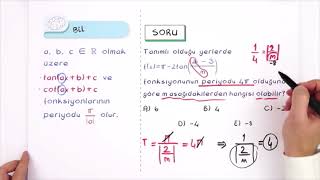 BİL
a, b, c ∈ R olmak
üzere
tan(ax+b)+c ve
cot(ax+b)+c
fonksiyonlarının
periyodu π/|a| olur.
SORU
Tanımlı olduğu yerlerde
f(x)=π-2tan(2x-3/m)
fonksiyonunun periyodu 4π olduğuna
göre m aşağıdakilerden hangisi olabilir?
A) 6 B) 4 C) -4
D) -6 E) -8
1/4 = |2/m|
-8
T = π/|2/m| = 4π ⇒ 1/|2/m| = 4